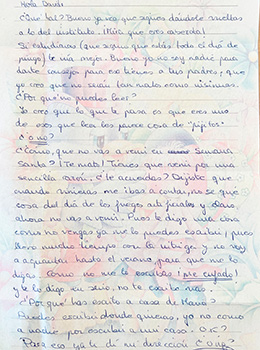 Hola David:
¿Que tal? Bueno ya veo que sigues dándole vueltas
a lo del instituto. ¡Mira que eres
Si estudiaras (que sigues que estás todo el día de
te iría mejor. Bueno yo no soy nadie para
darte consejos para eso tienes a tus padres, que
yo creo que no serán tan malos como
¿Por qué no puedes leer?
Yo creo que lo que te pasa es que eres uno
de esos que lee los jueves cosa de "pijitos"
¿O no?
¿Cómo, que no vas a venir en Semana
Santa? ¡Te mato! Tienes que venir por una
sencilla razón. ¿te acuerdas? Dijiste que
cuando vinieras me ibas a contar, no se que
cosa del día de los fuegos artificiales y claro,
ahora no vas a venir. Pues te digo una cosa
como no vengas ya me lo puedes escribir pues
llevo mucho tiempo con la intriga y no voy
a aguantar hasta el verano para que me lo
digas. Como no me lo escribas ¡Me enfado!
y te lo digo en serio, no te escribo más.
¿Por qué has escrito a casa de
Puedes escribir donde quieras, yo no como
a nadie por escribir a mi casa. O.K?
Para eso ya te di mi dirección ¿O no?